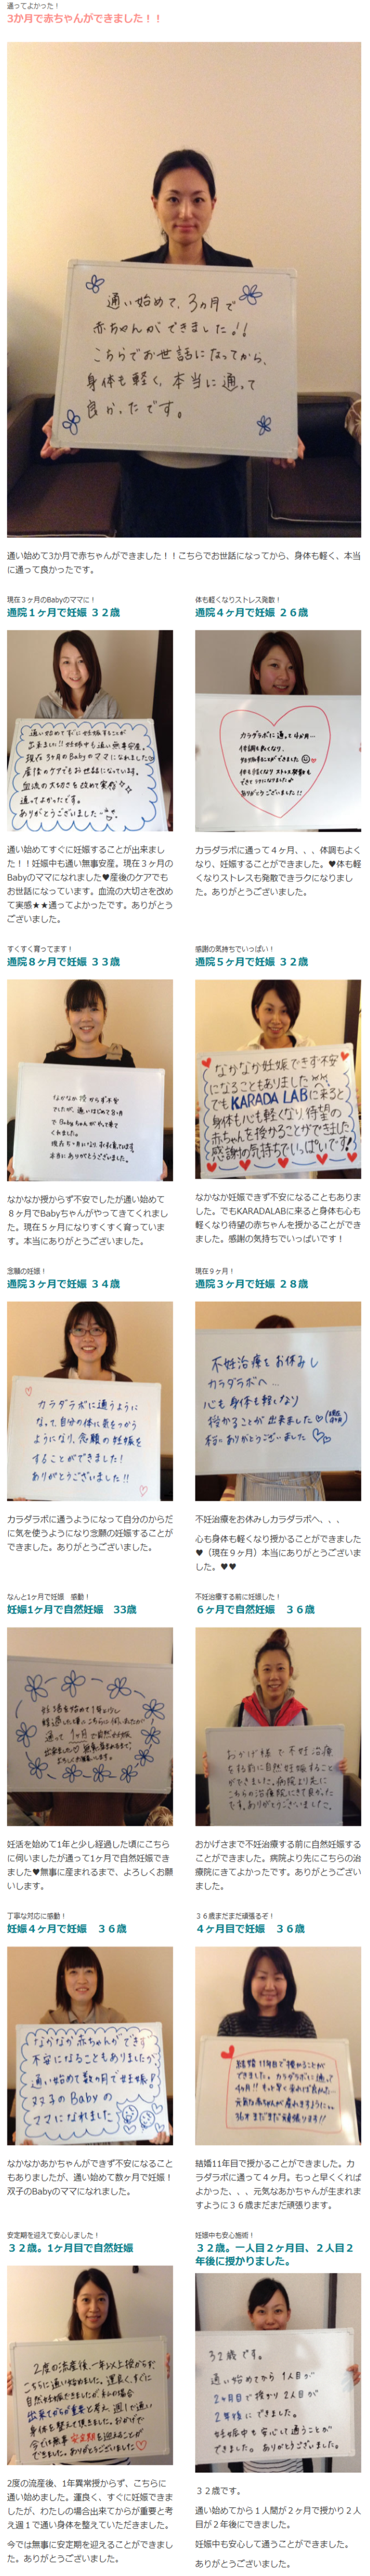 通ってよかった！
3か月で赤ちゃんができました！！
通い始めて、3ヵ月で
赤ちゃんができました!!
こちらでお世話になってから、
身体も軽く、本当に通って
良かったです。
通い始めて3か月で赤ちゃんができました！！こちらでお世話になってから、身体も軽く、本当
に通って良かったです。
現在３ヶ月のBabyのママに！
通院１ヶ月で妊娠 ３２歳
通い始めてすぐに妊娠することが
出来ました!!妊娠中も通い無事安産。
現在3ヶ月のBabyのママになれました♡
産後のケアでもお世話になっています。
血流の大切さを改めて実感
通ってよかったです。
ありがとうございました
通い始めてすぐに妊娠することが出来まし
た！！妊娠中も通い無事安産。現在３ヶ月の
Babyのママになれました♥産後のケアでも
お世話になっています。血流の大切さを改め
て実感★★通ってよかったです。ありがとう
ございました。
体も軽くなりストレス発散！
通院４ヶ月で妊娠 ２６歳
カラダラボに通って4ヶ月…
体調も良くなり、
妊娠することができました
体も軽くなりストレス発散も
できてラクになりました
ありがとうございました!!
カラダラボに通って４ヶ月、、、体調もよく
なり、妊娠することができました。♥体も軽
くなりストレスも発散できラクになりまし
た。ありがとうございました。
すくすく育ってます！
通院８ヶ月で妊娠 ３３歳
なかなか授からず不安
でしたが、通いはじめて8ヶ月
でBabyちゃんがやって来て
くれました。
現在5ヶ月になりすくすく育ってます。
本当にありがとうございました。
なかなか授からず不安でしたが通い始めて
８ヶ月でBabyちゃんがやってきてくれまし
た。現在５ヶ月になりすくすく育っていま
す。本当にありがとうございました。
感謝の気持ちでいっぱい！
通院５ヶ月で妊娠 ３２歳
なかなか妊娠できず不安
になることもありました
でもKARADA LABに来ると
身体も心も軽くなり待望の
赤ちゃんを授かることができました
感謝の気持ちでいっぱいです!
なかなか妊娠できず不安になることもありま
した。でもKARADALABに来ると身体も心も
軽くなり待望の赤ちゃんを授かることができ
ました。感謝の気持ちでいっぱいです！
念願の妊娠！
通院３ヶ月で妊娠 ３４歳
カラダラボに通うように
なって、自分の体に気をつかう
ようになり、念願の妊娠を
することができました!
ありがとうございました!!
カラダラボに通うようになって自分のからだ
に気を使うようになり念願の妊娠することが
できました。ありがとうございました。
現在９ヶ月！
通院３ヶ月で妊娠 ２８歳
不妊治療をお休みし
カラダラボへ…
心も身体も軽くなり
授かることが出来ました♡(現在9ヶ月)
本当にありがとうございました♡♡
不妊治療をお休みしカラダラボへ、、、
心も身体も軽くなり授かることができました
♥（現在９ヶ月）本当にありがとうございま
した。♥♥
なんと1ヶ月で妊娠　感動！
妊娠1ヶ月で自然妊娠　33歳
妊活を始めて1年と少し
経過した頃にこちらに伺いましたが
通って1ヶ月で自然妊娠
出来ました♡無事に産まれるまで、
よろしくお願いします。
妊活を始めて1年と少し経過した頃にこちら
に伺いましたが通って1ヶ月で自然妊娠でき
ました♥無事に産まれるまで、よろしくお願
いします。
不妊治療する前に妊娠した！
６ヶ月で自然妊娠　３６歳
おかげ様で不妊治療
をする前に自然妊娠することが
できました。病院より先に
こちらの治療院にきて良かった
です。ありがとうございました。
おかげさまで不妊治療する前に自然妊娠する
ことができました。病院より先にこちらの治
療院にきてよかったです。ありがとうござい
ました。
丁寧な対応に感動！
妊娠４ヶ月で妊娠　３６歳
なかなか赤ちゃんができず
不安になることもありましたが、
通い始めて数ヶ月で妊娠!
双子のBabyの
ママになれました
なかなかあかちゃんができず不安になること
もありましたが、通い始めて数ヶ月で妊娠！
双子のBabyのママになれました。
３６歳まだまだ頑張るぞ！
４ヶ月目で妊娠　３６歳
結婚11年目で授かることが
できました。カラダラボに通って
4ヶ月!!もっと早く来れば良かった…
元気な赤ちゃんが産れますように。
36才まだまだ頑張ります!!
結婚11年目で授かることができました。カ
ラダラボに通って４ヶ月。もっと早くくれば
よかった、、、元気なあかちゃんが生まれま
すように３６歳まだまだ頑張ります。
安定期を迎えて安心しました！
３２歳。1ヶ月目で自然妊娠
2度の流産後、一年以上授からず、
こちらに通い始めました。運良く、すぐに
自然妊娠できましたが、私の場合
出来てからが重要と考え、週1で通い
身体を整えて頂きました。おかげで
今では無事安定期を迎えることが
できました。ありがとうございました♡
2度の流産後、1年異常授からず、こちらに
通い始めました。運良く、すぐに妊娠できま
したが、わたしの場合出来てからが重要と考
え週１で通い身体を整えていただきました。
今では無事に安定期を迎えることができまし
た。ありがとうございました。
妊娠中も安心施術！
３２歳。一人目２ヶ月目、２人目２
年後に授かりました。
32歳です。
通い始めてから1人目が
2ヶ月目で授かり2人目が
2年後にできました。
妊娠中も安心して通うことが
できました。ありがとうございました。
３２歳です。
通い始めてから１人間が２ヶ月で授かり２人
目が２年後にできました。
妊娠中も安心して通うことができました。
ありがとうございました。